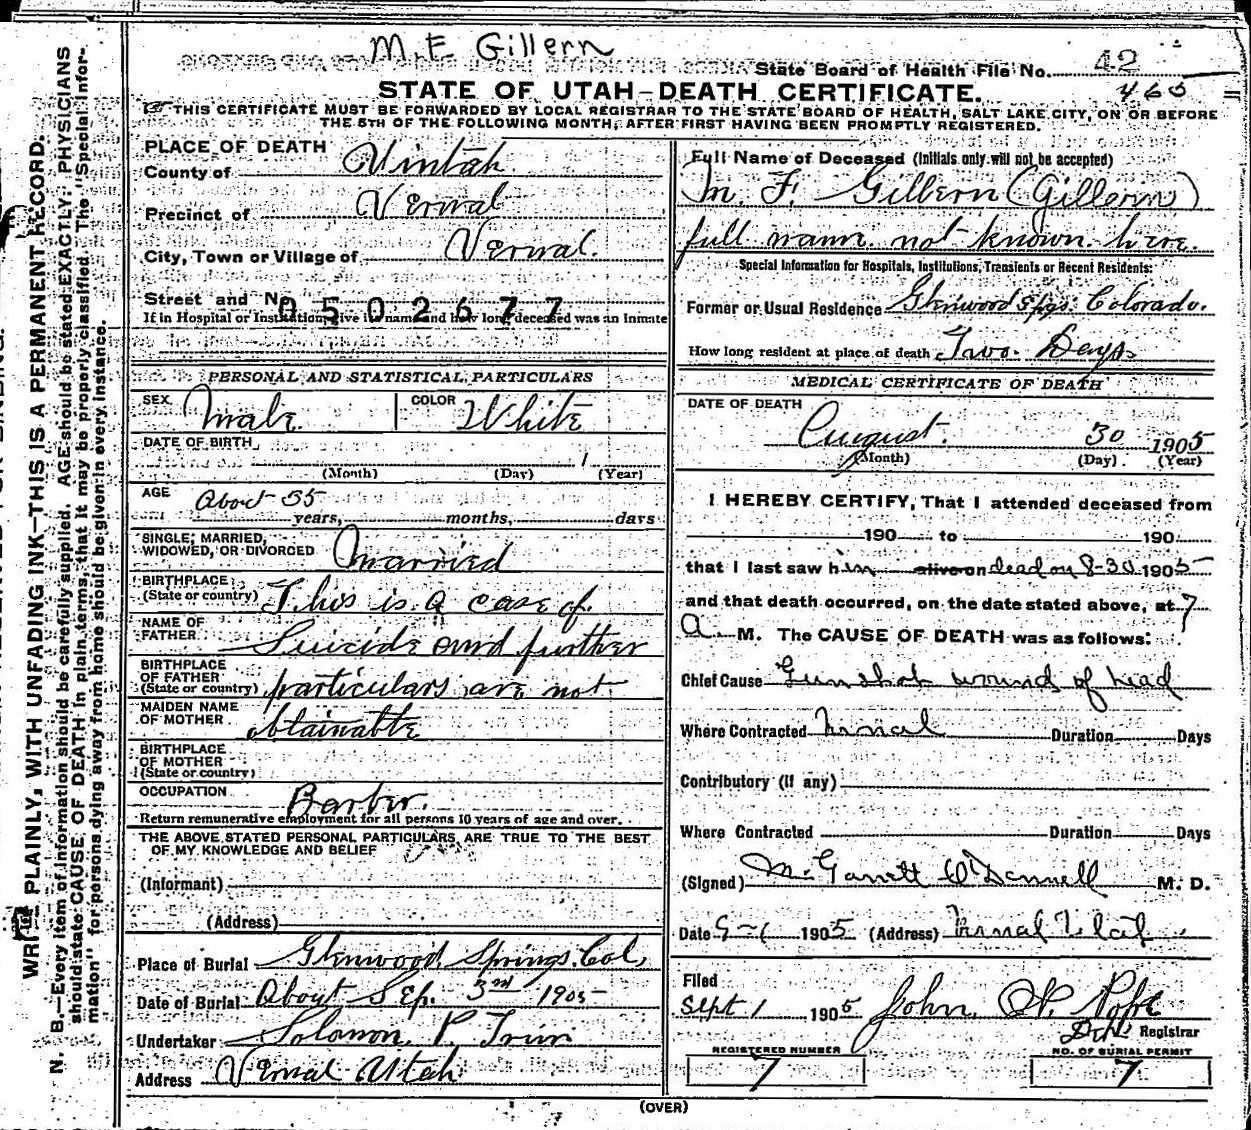 M. E. Gillern
State Board of Health File No. 42
STATE OF UTAH—DEATH CERTIFICATE. 465
THIS CERTIFICATE MUST BE FORWARDED BY LOCAL REGISTRAR TO THE STATE BOARD OF HEALTH, SALT LAKE CITY, ON OR BEFORE
THE 5TH OF THE FOLLOWING MONTH, AFTER FIRST HAVING BEEN PROMPTLY REGISTERED.
PLACE OF DEATH
County of Uintah
Precinct of Vernal
City, Town or Village of Vernal.
Street and No.
0502677
If in Hospital or Institution, give its name and how long deceased was an inmate
PERSONAL AND STATISTICAL PARTICULARS
SEX Male COLOR White
DATE OF BIRTH
1
(Month) (Day) (Year)
AGE About 55
years, months, days
SINGLE, MARRIED,
WIDOWED, OR DIVORCED Married
BIRTHPLACE
(State or country) This is a case of
NAME OF
FATHER Suicide and further
BIRTHPLACE
OF FATHER
(State or country) particulars are not
MAIDEN NAME
OF MOTHER obtainable
BIRTHPLACE
OF MOTHER
(State or country)
OCCUPATION Barber.
Return remunerative employment for all persons 10 years of age and over.
THE ABOVE STATED PERSONAL PARTICULARS ARE TRUE TO THE BEST
OF MY KNOWLEDGE AND BELIEF
(Informant)
(Address)
Place of Burial Glenwood Springs. Col,
Date of Burial About Sep. 3rd 1905
Undertaker Solomon. P. Trim
Address Vernal Utah
Full Name of Deceased (Initials only will not be accepted)
M. F. Gilbern (Gillerin)
full name not known here.
Special Information for Hospitals, Institutions, Transients or Recent Residents:
Former or Usual Residence Glenwood Spgs. Colorado.
How long resident at place of death Two. Days
MEDICAL CERTIFICATE OF DEATH
DATE OF DEATH
August. 30 1905
(Month) (Day) (Year)
I HEREBY CERTIFY, That I attended deceased from
190 to 190
that I last saw him alive on dead on 8-30 1905
and that death occurred, on the date stated above, at 7
A M. The CAUSE OF DEATH was as follows:
Chief Cause Gunshot wound of head
Where Contracted Vernal Duration Days
Contributory (if any)
Where Contracted Duration Days
(Signed) M. Garrett O'Donnell M. D.
Date 9-1 1905 (Address) Vernal Utah
Filed
Sept 1 1905 John P. Pope
Registrar
REGISTERED NUMBER NO. OF BURIAL PERMIT
7 7
(OVER)
WRITE PLAINLY, WITH UNFADING INK—THIS IS A PERMANENT RECORD.
N. B.—Every item of information should be carefully supplied. AGE should be stated EXACTLY. PHYSICIANS
should state CAUSE OF DEATH in plain terms, that it may be properly classified. The "Special Infor-
mation" for persons dying away from home should be given in every instance.